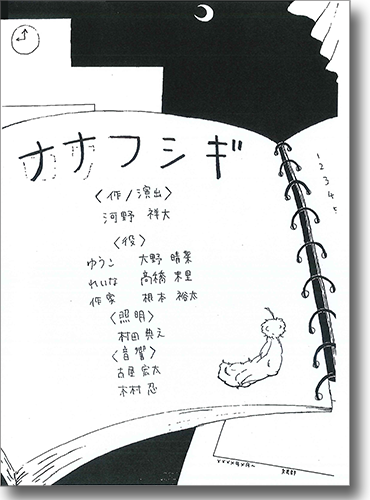 ナナフシギ
〈作/演出〉
河野 祥大
〈役〉
ゆうこ 大野 晴菜
れいな 高橋 朱里
作家 根本 裕太
〈照明〉
村田 典之
〈音響〉
古屋 宏太
木村 忍
1
2
3
4
5